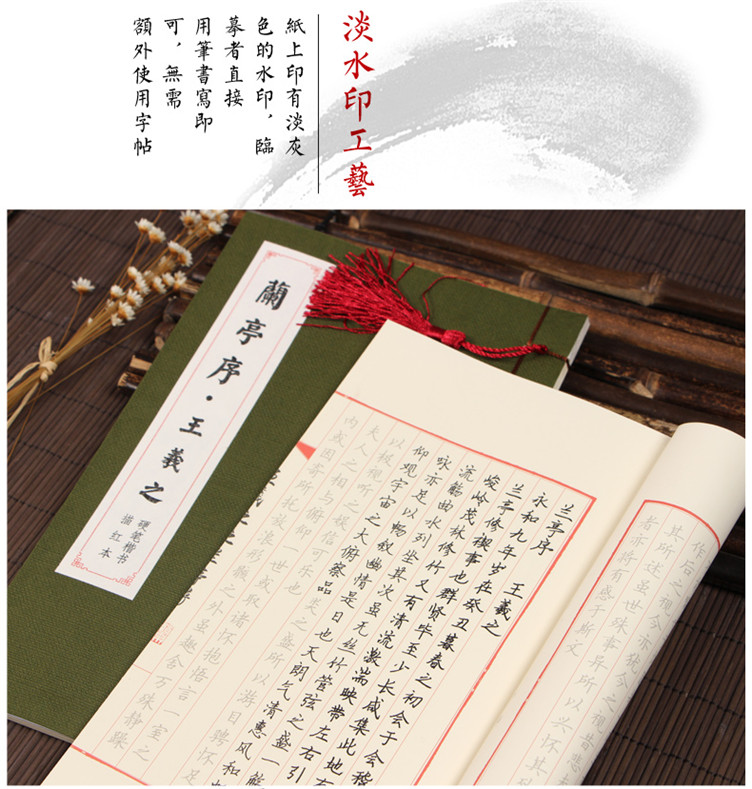 淡水印工藝
紙上印有淡灰
色的水印，臨
摹者直接
用筆書寫即
可，無需
額外使用字帖
蘭亭序·王羲之
硬笔楷书
描红本
兰亭序 王羲之
永和九年岁在癸丑暮春之初会于会稽
兰亭修禊事也群贤毕至少长咸集此地有
峻岭茂林修竹又有清流激湍映带左右引
流觞曲水列坐其次虽无丝竹管弦之盛一觞
咏亦足以畅叙幽情是日也天朗气清惠风和
仰观宇宙之大俯察品类之盛所以游目骋怀足
以极视听之娱信可乐也
夫人之相与俯仰一世或取诸怀抱悟言一室之
内或因寄所托放浪形骸之外虽趣舍万殊静躁
其所述虽世殊事异所以兴怀其
者亦将有感于斯文